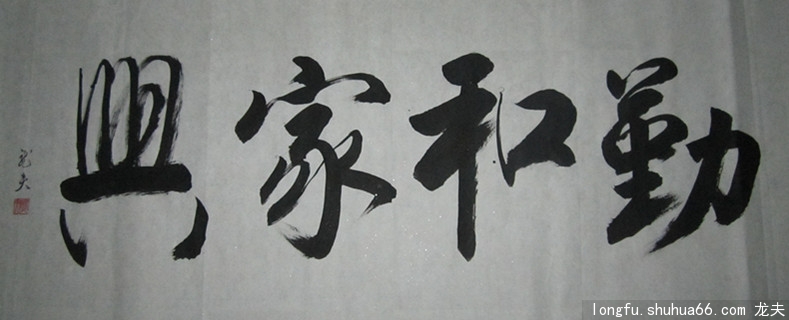 勤和家興
龙夫
longfu.shuhua66.com 龙夫